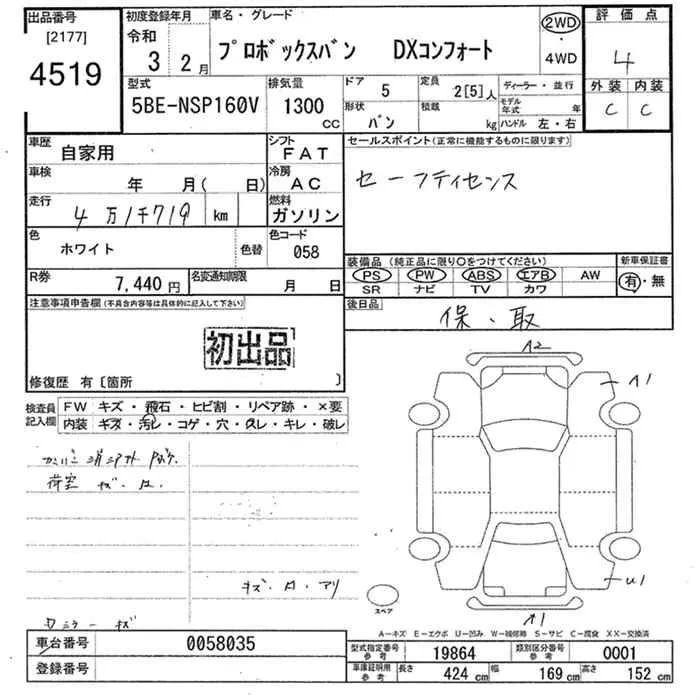 出品番号 初度登録年月 車名・グレード 2WD 評価点
[2177] 令和
4519 3 2月 プロボックスバン DXコンフォート ・ 4WD 4
型式 排気量 ドア 5 定員 2[5]人 ディーラー・並行 外装 内装
5BE-NSP160V 1300 CC 形状 バン 積載 kg モデル年式 年 C C
ハンドル 左・右
車歴 自家用 シフト FAT セールスポイント(正常に機能するものに限ります)
車検 年 月( 日) 冷房 AC セーフティセンス
走行 4万1千719 km 燃料 ガソリン
色 ホワイト 色替 色コード 058
装備品(純正品に限り○をつけてください) 新車保証書
R券 7,440円 名変通知期限 月 日 PS PW ABS エアB AW 有・無
SR ナビ TV カワ
注意事項申告欄(不具合内容等は具体的に記入して下さい) 後日品 保・取
初出品
修復歴 有〔箇所 〕
A2
A1
検査員記入欄 FW キズ・飛石・ヒビ割・リペア跡・×要
内装 キズ・汚レ・コゲ・穴・スレ・キレ・破レ
荷室 キズ
U1
スペア
A1
キズ・ アリ
ミラー キズ
A-キズ E-エクボ U-凹み W-補修時 S-サビ C-腐食 XX-交換済
車台番号 0058035 型式指定番号 参考 19864 類別区分番号 参考 0001
登録番号 車庫証明用 参考 長さ 424 cm 幅 169 cm 高さ 152 cm